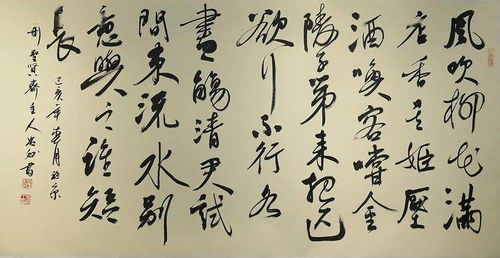 風吹柳花滿
店香吳姬壓
酒喚客嚐金
陵子弟來相送
欲行不行各
盡觴請君試
問東流水別
意與之誰短
長
己亥年月於京
齋主人書